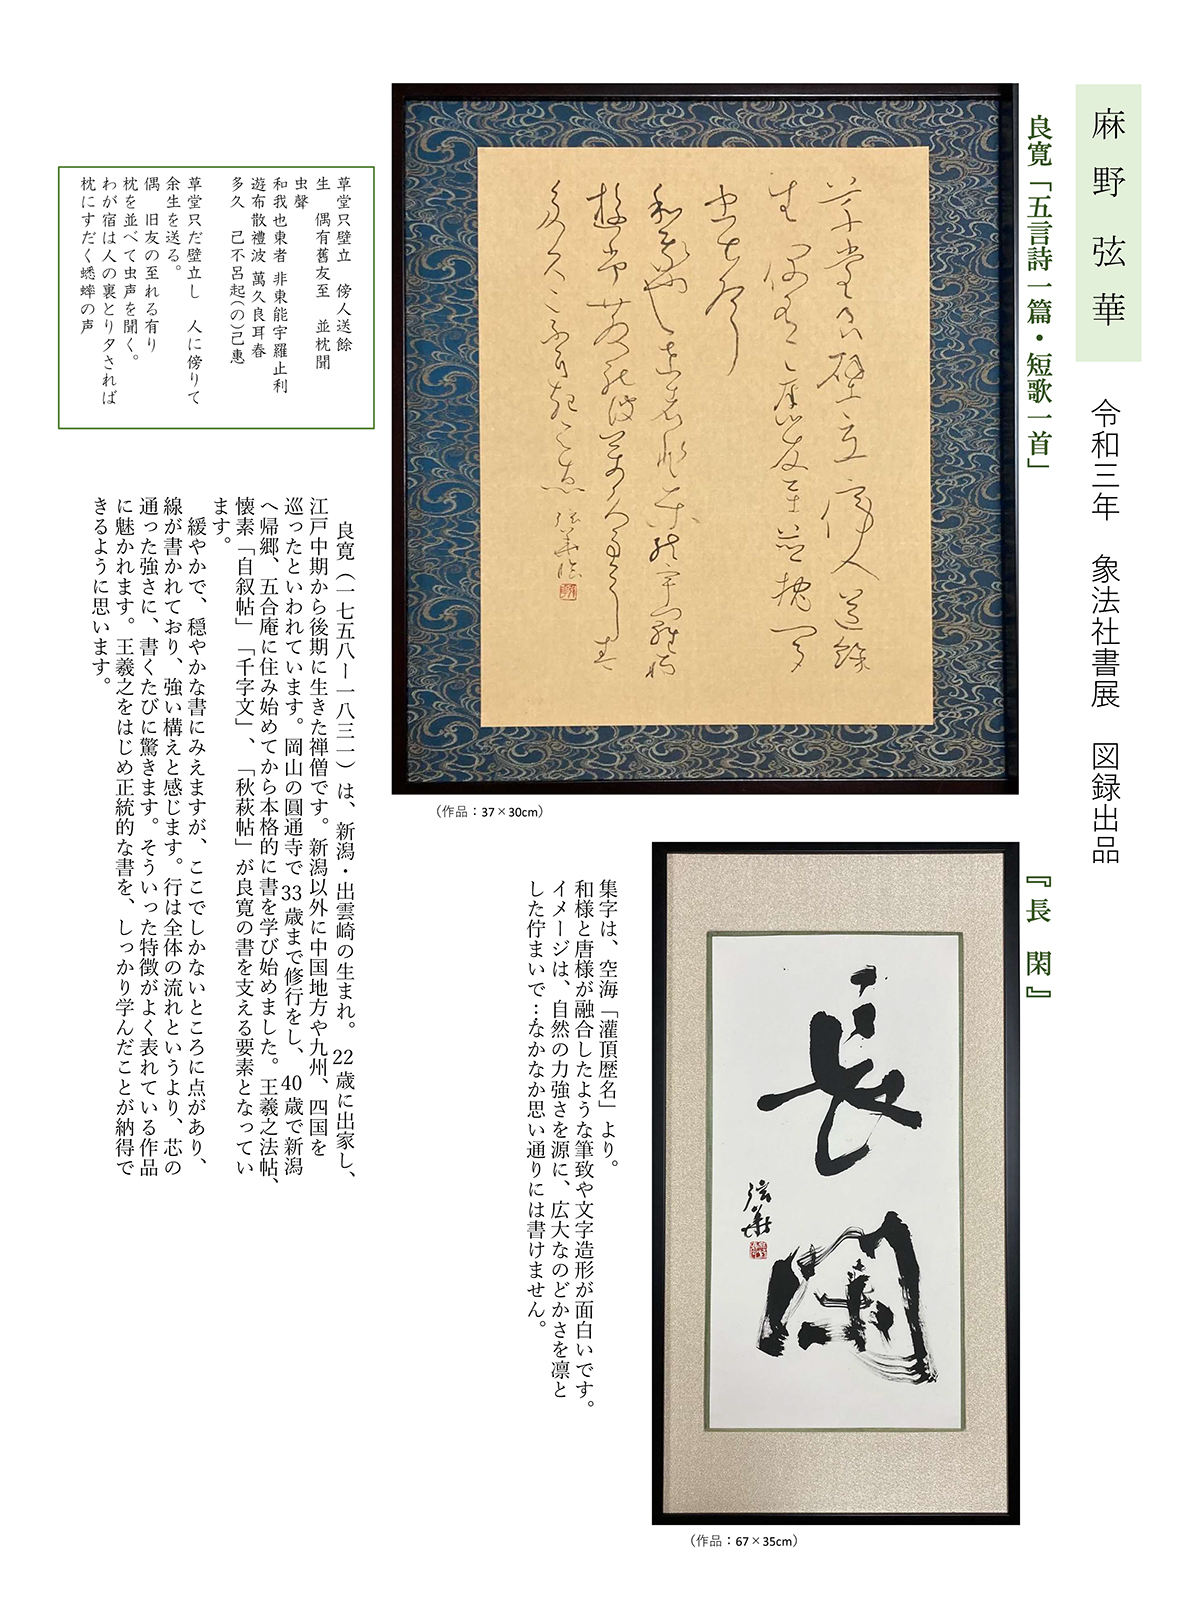 麻野弦華
令和三年　象法社書展　図録出品
良寛「五言詩一篇・短歌一首」
草堂只壁立　傍人送餘
生　偶有舊友至　並枕聞
虫聲
和我也東者 非東能宇羅止利
遊布散禮波 萬久良耳春
多久　己不呂起(の)己恵
草堂只だ壁立し　人に傍りて
余生を送る。
偶　旧友の至れる有り
枕を並べて虫声を聞く。
わが宿は人の裏とり夕されば
枕にすだく蟋蟀の声
（作品：37×30cm）
良寛（一七五八ー一八三一）は、新潟・出雲崎の生まれ。22歳に出家し、
江戸中期から後期に生きた禅僧です。新潟以外に中国地方や九州、四国を
巡ったといわれています。岡山の圓通寺で33歳まで修行をし、40歳で新潟
へ帰郷、五合庵に住み始めてから本格的に書を学び始めました。王羲之法帖、
懐素「自叙帖」「千字文」、「秋萩帖」が良寛の書を支える要素となってい
ます。
緩やかで、穏やかな書にみえますが、ここでしかないところに点があり、
線が書かれており、強い構えと感じます。行は全体の流れというより、芯の
通った強さに、書くたびに驚きます。そういった特徴がよく表れている作品
に魅かれます。王羲之をはじめ正統的な書を、しっかり学んだことが納得で
きるように思います。
『長　閑』
長閑
弦華
集字は、空海「灌頂歴名」より。
和様と唐様が融合したような筆致や文字造形が面白いです。
イメージは、自然の力強さを源に、広大なのどかさを凛と
した佇まいで…なかなか思い通りには書けません。
（作品：67×35cm）